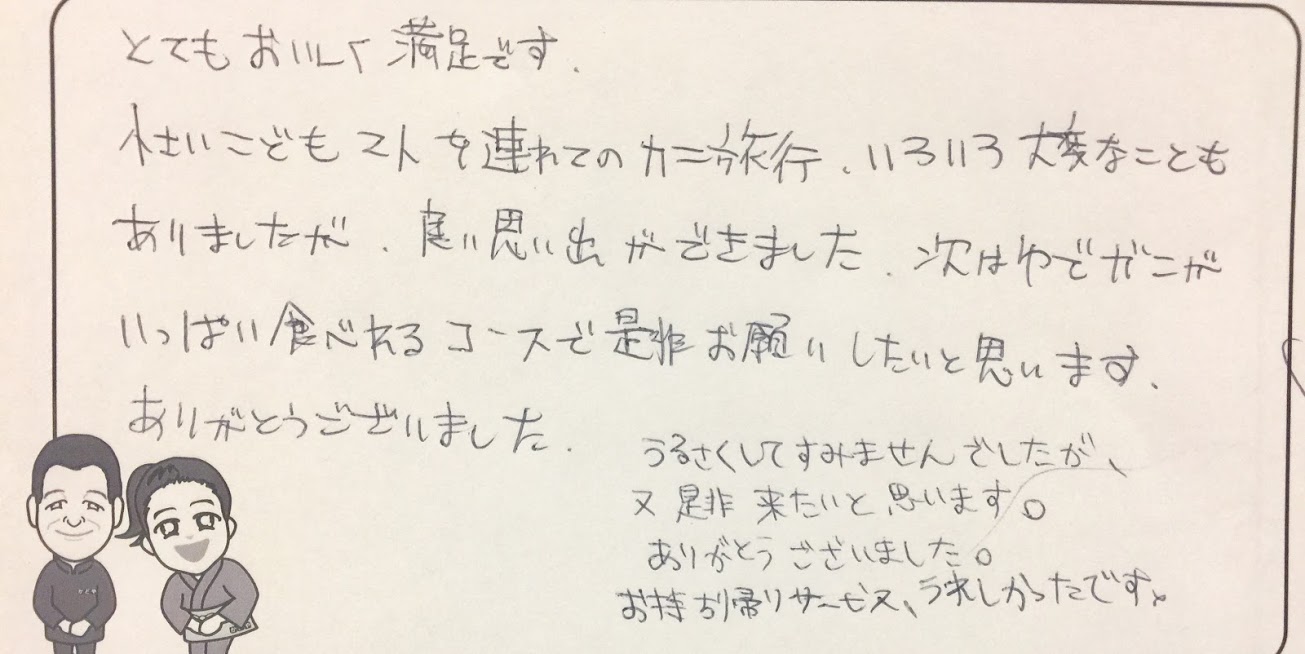 とてもおいしく満足です.
小さいこども2人を連れてのカニ旅行、いろいろ大変なことも
ありましたが、良い思い出ができました. 次はゆでガニが
いっぱい食べれるコースで是非お願いしたいと思います、
ありがとうございました.
うるさくしてすみませんでしたが、
又是非来たいと思います。
ありがとうございました。
お持ち帰りサービス、うれしかったです。